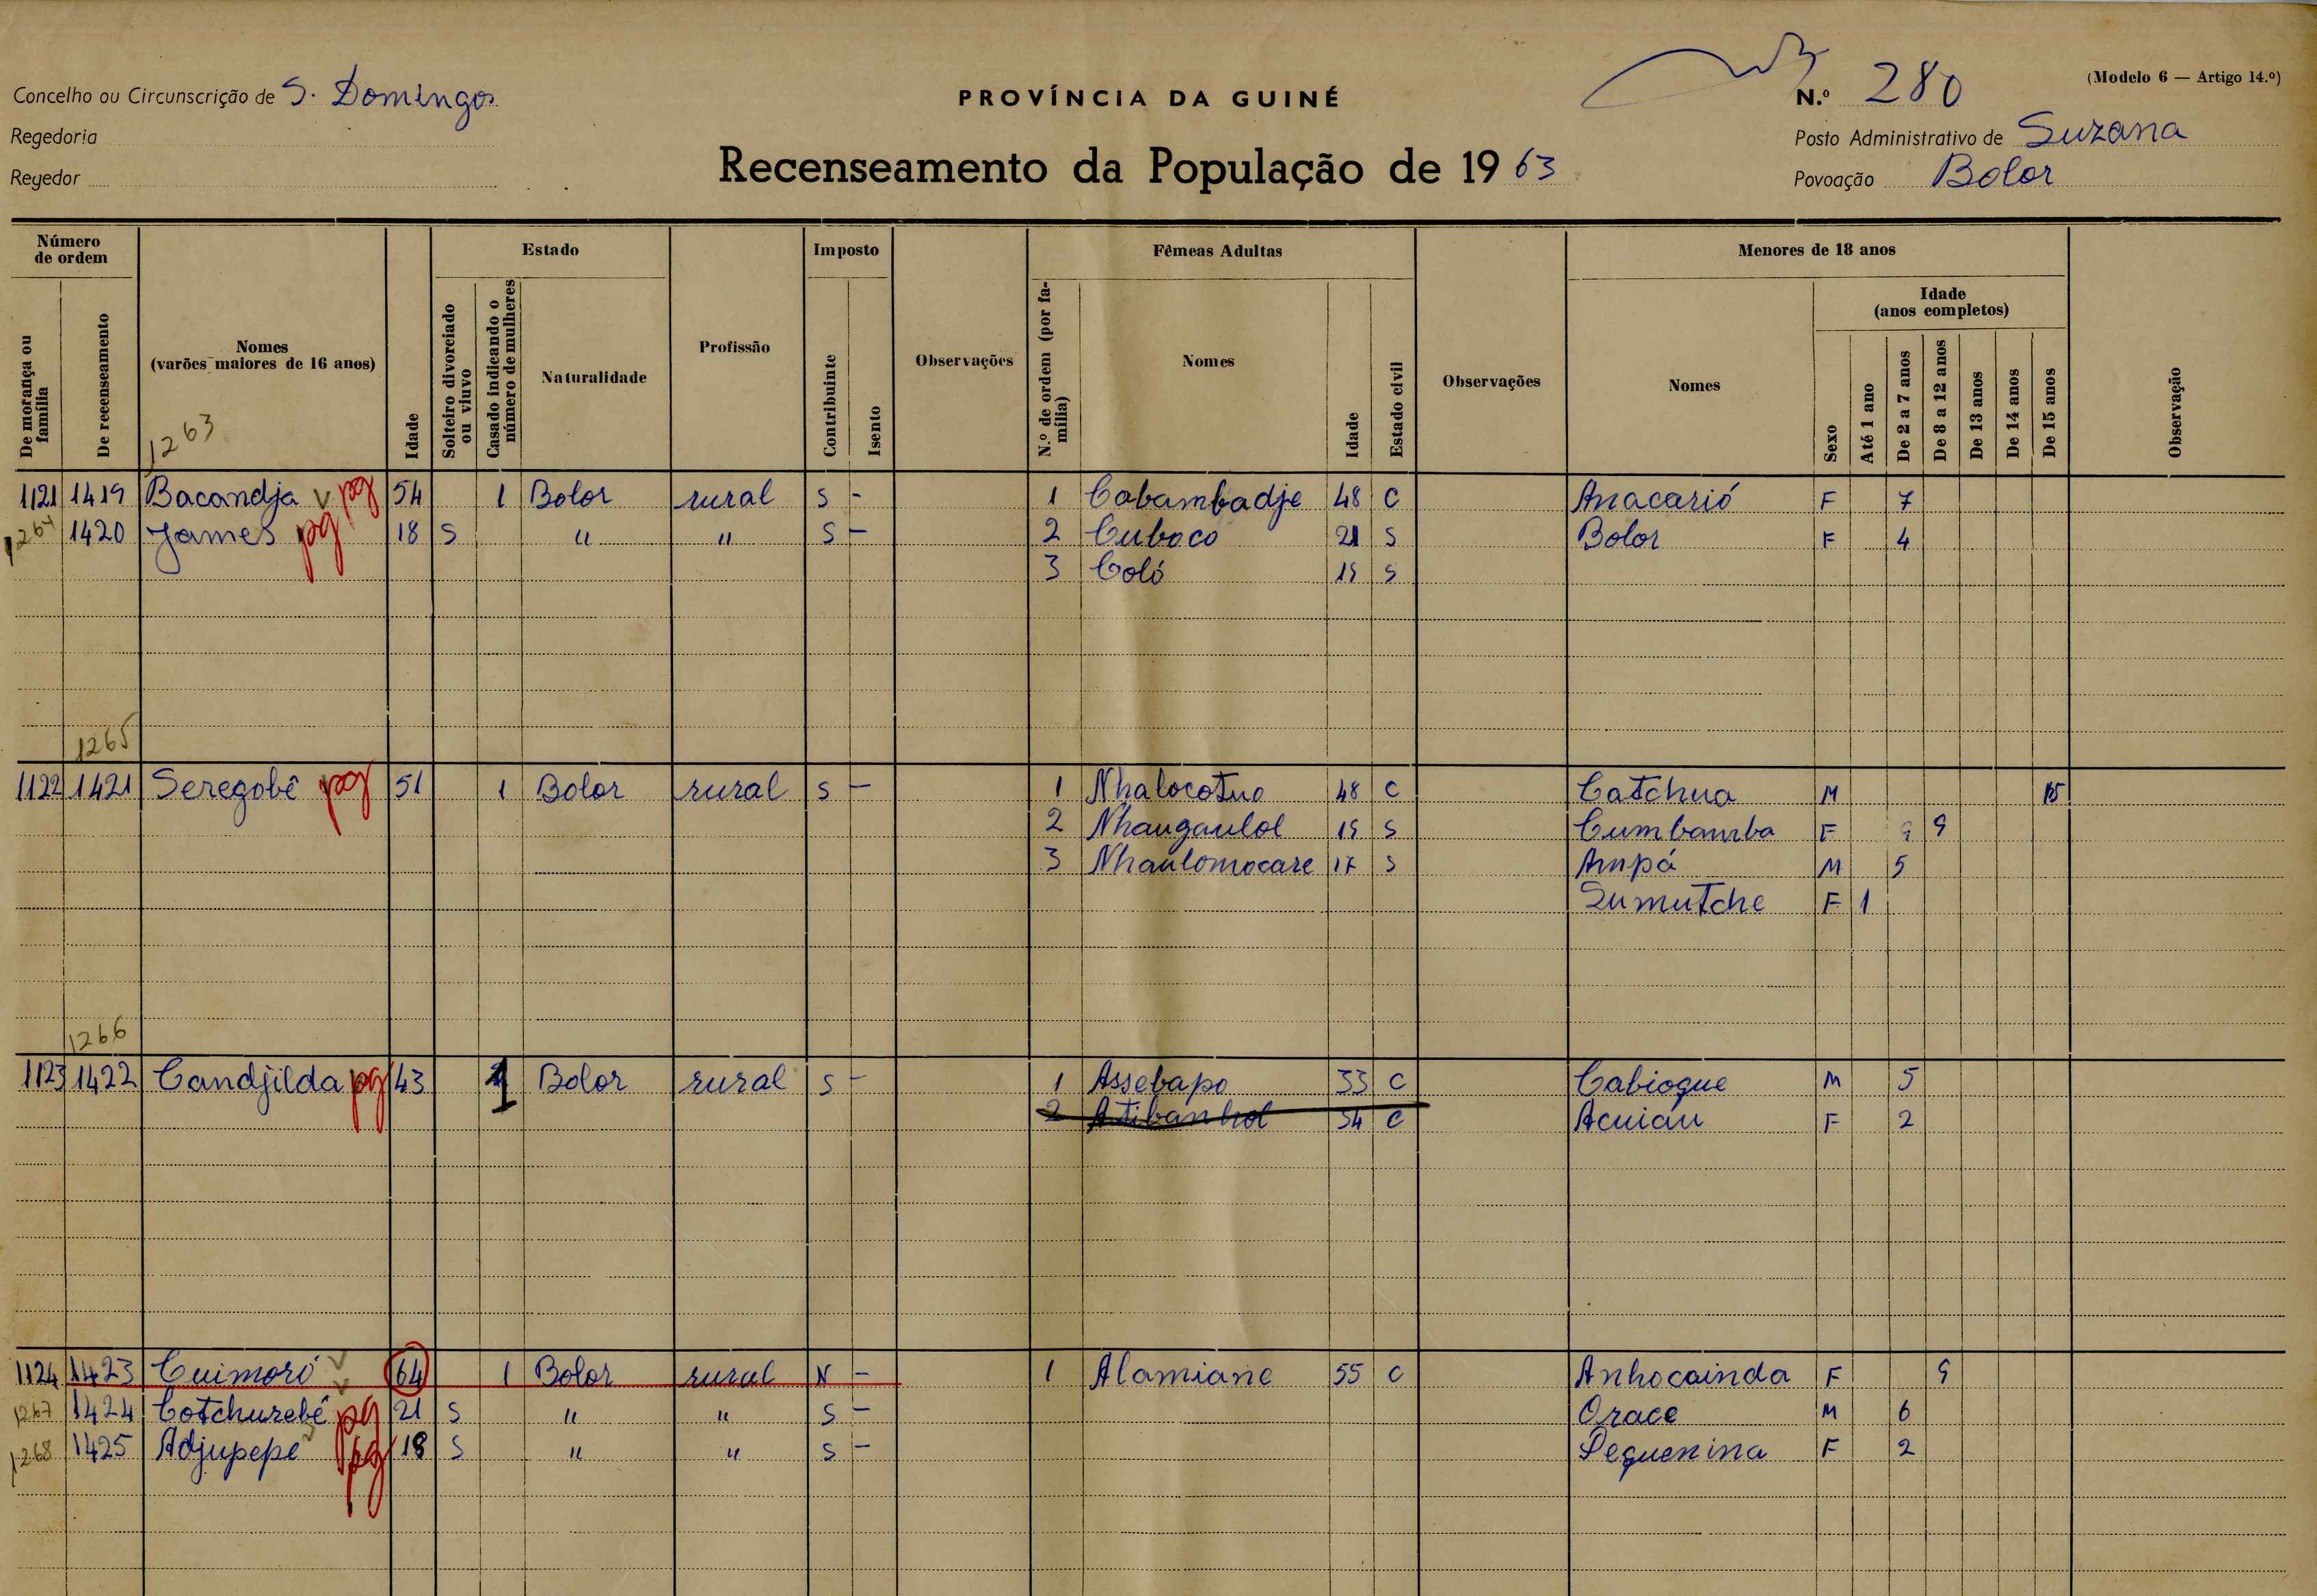 Concelho ou Circunscrição de S. Domingos
Regedoria
Regedor
PROVÍNCIA DA GUINÉ
Recenseamento da População de 1963
(Modelo 6 — Artigo 14.º)
N.º 280
Posto Administrativo de Suzana
Povoação Bolor
Número de ordem
De morança ou família
De recenseamento
Nomes (varões maiores de 16 anos)
1263
Idade
Estado
Solteiro divorciado ou viuvo
Casado indicando o número de mulheres
Naturalidade
Profissão
Imposto
Contribuinte
Isento
Observações
Fêmeas Adultas
N.º de ordem (por família)
Nomes
Idade
Estado civil
Observações
Menores de 18 anos
Nomes
Idade (anos completos)
Sexo
Até 1 ano
De 2 a 7 anos
De 8 a 12 anos
De 13 anos
De 14 anos
De 15 anos
Observação
1121 1419 Bacandja v pg 54 1 Bolor rural S - 1 Cobambadje 48 C Anacarió F 7
1264 1420 James pg 18 S " " S - 2 Cuboco 21 S Bolor F 4
3 Coló 15 S
1265
1122 1421 Seregobê pg 51 1 Bolor rural S - 1 Nhalocotuo 48 C Catchua M 15
2 Nhaugaulol 15 S Cumbamba F 9
3 Nhaulomocare 17 S Ampá M 5
Sumutche F 1
1266
1123 1422 Candjilda pg 43 1 Bolor rural S - 1 Assebapo 33 C Cabioque M 5
2 Atibanhol 54 C Acuiau F 2
1124 1423 Cuimoró v 64 1 Bolor rural N - 1 Alamiane 55 C Anhocainda F 9
1267 1424 Cotchurebê pg 21 S " " S - Orace M 6
1268 1425 Adjupepe pg 18 S " " S - Pequenina F 2